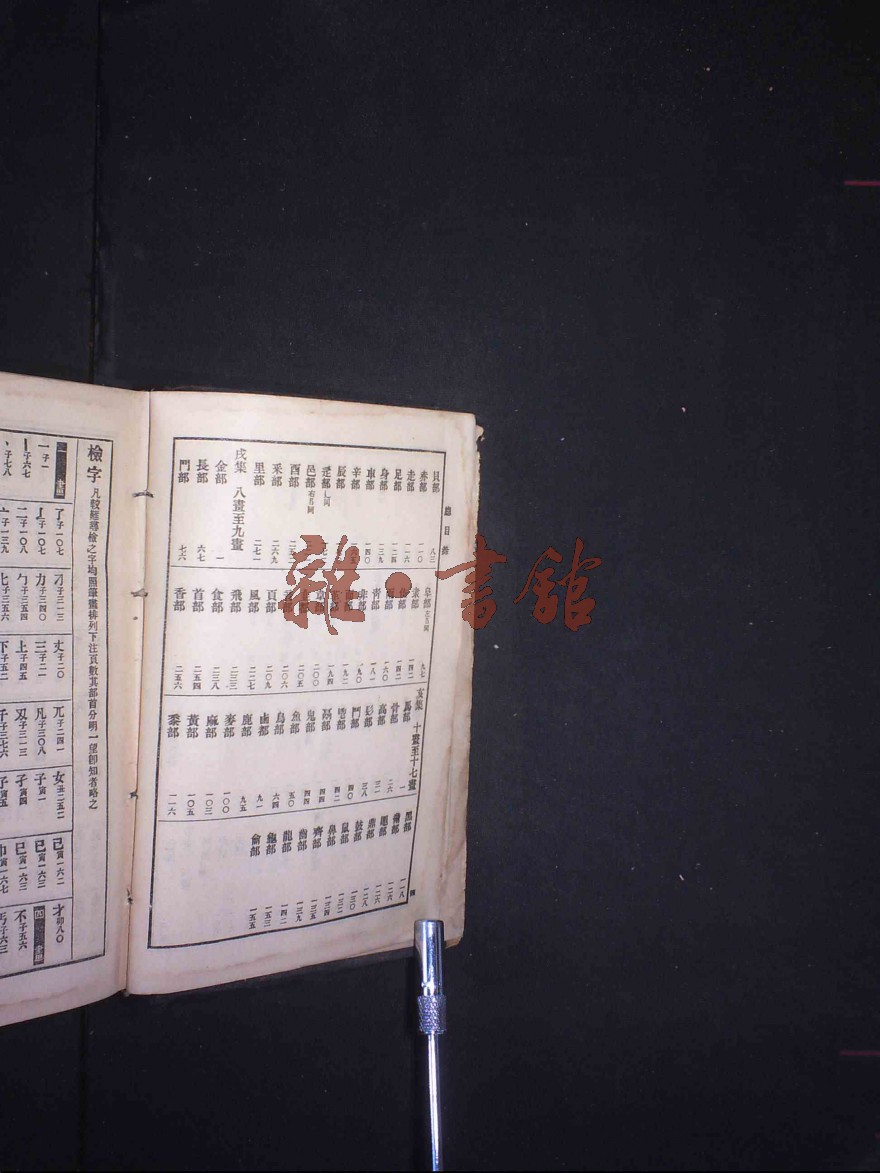 總目錄
貝部 八三
赤部 一一〇
走部
足部 一二四
身部 一三九
車部 一四〇
辛部
辰部
辵部 辶同
邑部 右阝同
酉部
釆部 二六九
里部 二七一
戌集 八畫至九畫
金部 一
長部 六七
門部 七六
阜部 左阝同 九七
隶部 一四一
隹部 一四二
雨部 一六〇
靑部 一八一
非部
頁部 二〇九
風部 二二七
飛部 二三三
食部
首部 二五四
香部 二五六
亥集 十畫至十七畫
馬部 一
骨部 二六
高部 三一
髟部
鬥部 四〇
鬯部 四二
鬲部
鬼部 四四
魚部 五〇
鳥部 六四
鹵部 九一
鹿部 九五
麥部 一〇〇
麻部 一〇三
黃部 一〇五
黍部 一一六
黑部 一一八
黹部
黽部 一二六
鼎部 一二八
鼓部 一三〇
鼠部 一三二
鼻部 一三四
齊部 一三五
齒部 一三九
龍部 一四二
龜部 一五三
龠部 一五五
四
檢字 凡較難尋檢之字均照筆畫排列下注頁數其部首分明一望卽知者略之
一 畫
一 子一
丨 子六七
丶 子七八
了 子一〇七
亅 子一〇七
二 子一〇八
亠 子一三九
刁 子二一三
力 子三四〇
勹 子三五四
匕 子三五六
丈 子二〇
三 子二一
上 子四五
下 子五二
兀 子二四一
凡 子三〇八
刄 子三一三
千 子三七六
女 丑二五二
孑 寅一
孓 寅四
子 寅五
己 寅一六二
已 寅一六三
巳 寅一六三
巾 寅一六七
才 卯八〇
四 畫
不 子五六
丐 子六三
雜·書館